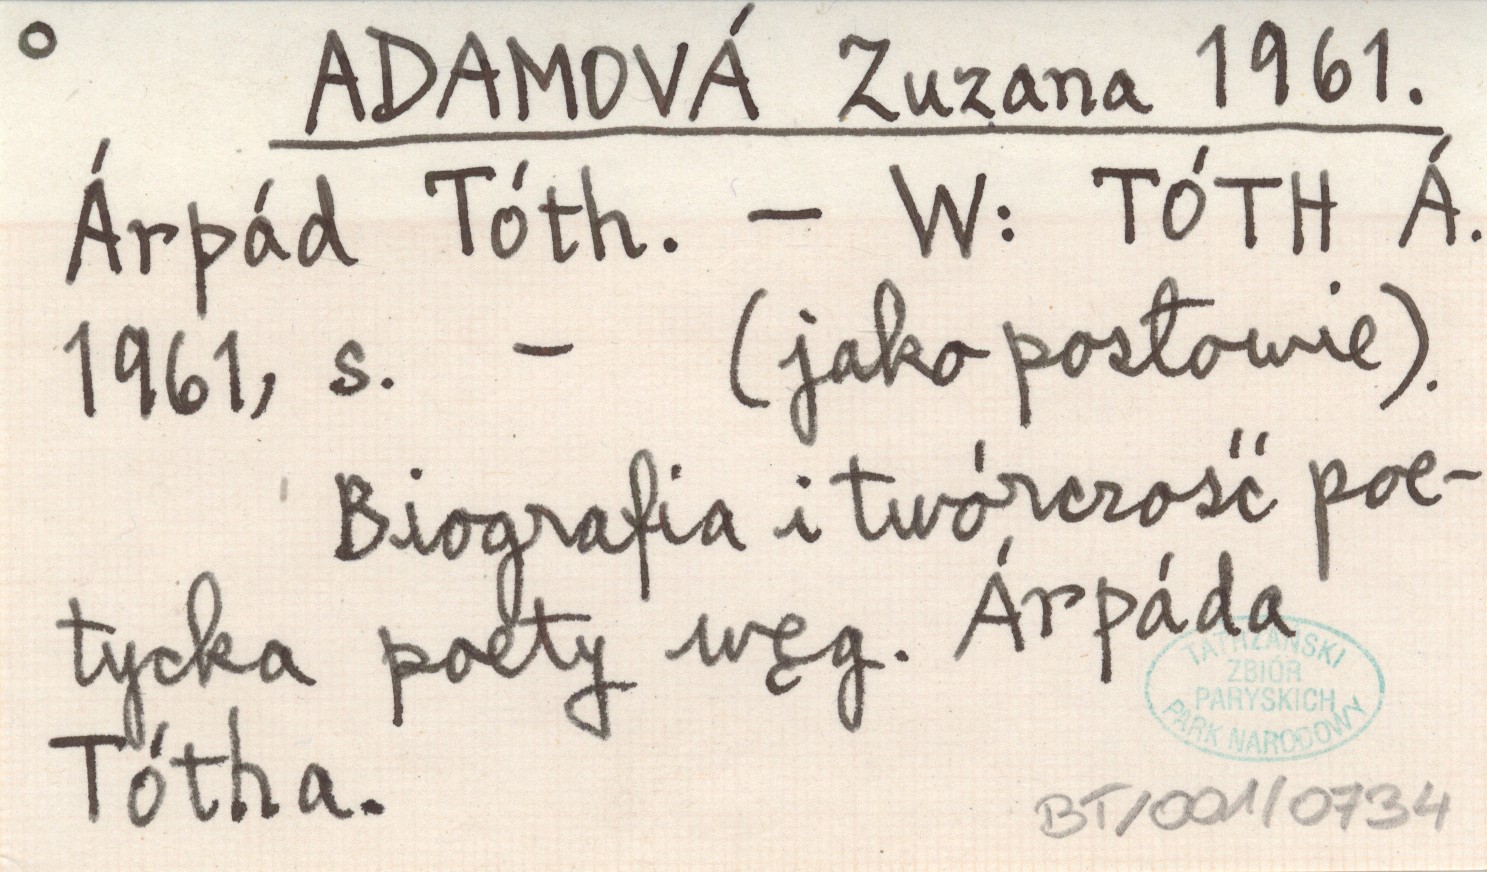 ADAMOVÁ Zuzana 1961.
Árpád Tóth. – W: TÓTH Á.
1961, s. – (jako posłowie).
Biografia i twórczość poe-
tycka poety węg. Árpáda
Tótha.
TATRZAŃSKI
ZBIÓR
PARYSKICH
PARK NARODOWY
BT/001/0734